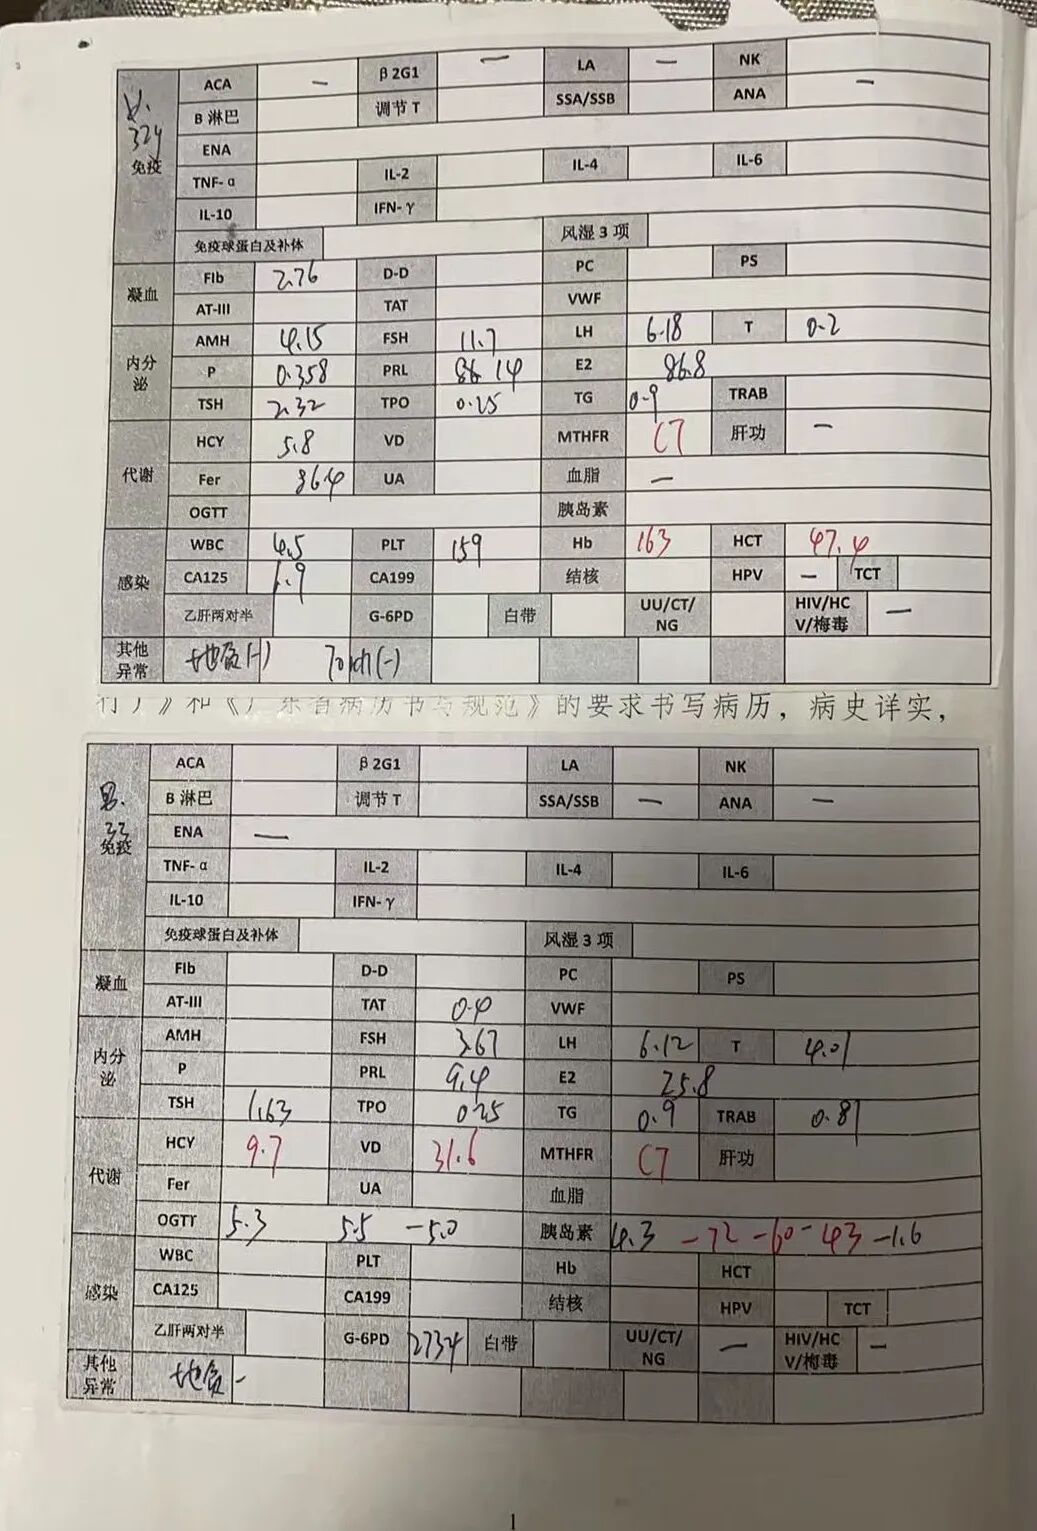 ACA — β2G1 — LA — NK
B淋巴 调节T SSA/SSB ANA —
ENA
32y
免疫
TNF-α IL-2 IL-4 IL-6
IL-10 IFN-γ
免疫球蛋白及补体 风湿3项
凝血 FIb 2.76 D-D PC PS
AT-III TAT VWF
内分泌 AMH 4.15 FSH 11.7 LH 6.18 T 0.2
P 0.358 PRL 86.14 E2 86.8
TSH 2.32 TPO 0.25 TG 0.9 TRAB
代谢 HCY 5.8 VD MTHFR CT 肝功 —
Fer 86.4 UA 血脂 —
OGTT 胰岛素
感染 WBC 4.5 PLT 159 Hb 163 HCT 47.4
CA125 CA199 结核 HPV — TCT
乙肝两对半 G-6PD 白带 UU/CT/NG HIV/HCV/梅毒 —
其他异常 地贫(-) Torch(-)
行）》和《广东省病历书写规范》的要求书写病历，病史详实，
ACA β2G1 LA NK
男.
33
免疫
B淋巴 调节T SSA/SSB — ANA —
ENA —
TNF-α IL-2 IL-4 IL-6
IL-10 IFN-γ
免疫球蛋白及补体 风湿3项
凝血 FIb D-D PC PS
AT-III TAT 0.4 VWF
内分泌 AMH FSH 3.67 LH 6.12 T 4.01
P PRL 9.4 E2 25.8
TSH 1.63 TPO 0.25 TG 0.9 TRAB 0.81
代谢 HCY 9.7 VD 31.6 MTHFR CT 肝功
Fer UA 血脂
OGTT 5.3 5.5 -5.0 胰岛素 4.3 -72 -60 -43 -1.6
感染 WBC PLT Hb HCT
CA125 CA199 结核 HPV TCT
乙肝两对半 G-6PD 2734 白带 UU/CT/NG — HIV/HCV/梅毒 —
其他异常 地贫 -
1